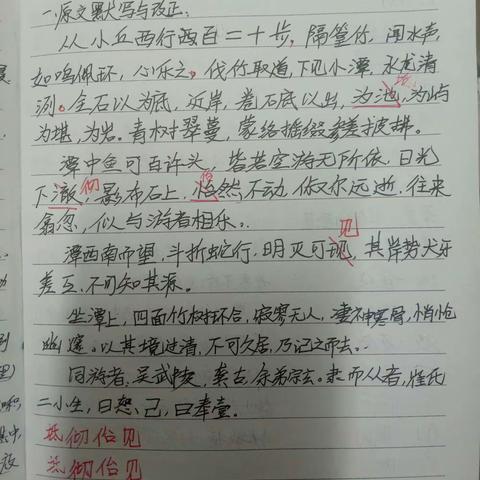 一.原文默写与改正:
从小丘西行百二十步,隔篁竹,闻水声,
如鸣佩环,心乐之。伐竹取道,下见小潭,水尤清
冽。全石以为底,近岸,卷石底以出,为池坻,为屿
为堪,为岩。青树翠蔓,蒙络摇缀,参差披拂。
潭中鱼可百许头,皆若空游无所依。日光
下澈彻,影布石上,怡佁然不动,俶尔远逝,往来
翕忽,似与游者相乐。
见
潭西南而望,斗折蛇行,明灭可现,其岸势犬牙
差互,不可知其源。
坐潭上,四面竹树环合,寂寥无人,凄神寒骨,悄怆
幽邃。以其境过清,不可久居,乃记之而去。
同游者,吴武陵,龚古,余弟宗玄。隶而从者,崔氏
二小生,曰恕己,曰奉壹。
坻彻佁见
坻彻佁见